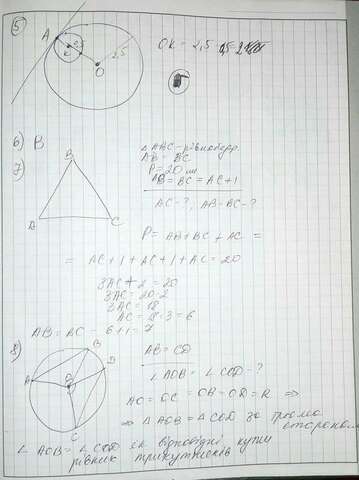 5)
A
K
O
2,5
OK = 2,5
6) B
7)
B
C
ΔABC - рівнобедр.
AB = BC
P = 20 см
AB = BC = AC + 1
AC - ?, AB = BC - ?
P = AB + BC + AC =
= AC + 1 + AC + 1 + AC = 20
3AC + 2 = 20
3AC = 20 - 2
3AC = 18
AC = 18 : 3 = 6
AB = AC - 6 + 1 = 7
8)
A
B
D
O
C
AB = CD
∠AOB = ∠COD - ?
AO = OC = OB = OD = R ⇒
⇒ ΔAOB = ΔCOD за трьома
сторонами
∠AOB = ∠COD як відповідні кути
рівних трикутників